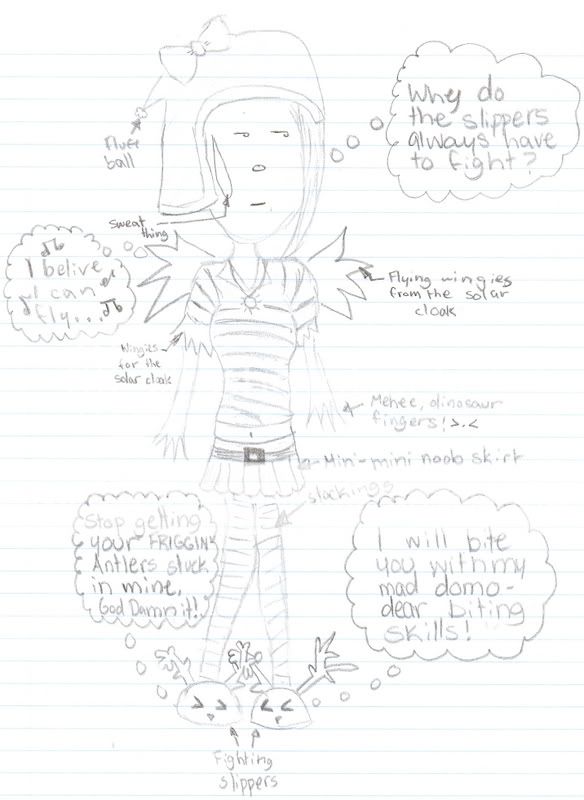 Why do
the slippers
always have
to fight?
Fluff
ball
sweat
thing
I belive
I can
fly...
Flying wingies
from the solar
cloak
Wingies
for the
solar cloak
Mehee, dinosaur
fingers! >.<
Mini-mini noob skirt
stockings
Stop getting
your FRIGGIN'
Antlers stuck
in mine,
God Damn it!
I will bite
you with my
mad domo-
dear biting
skills!
Fighting
slippers